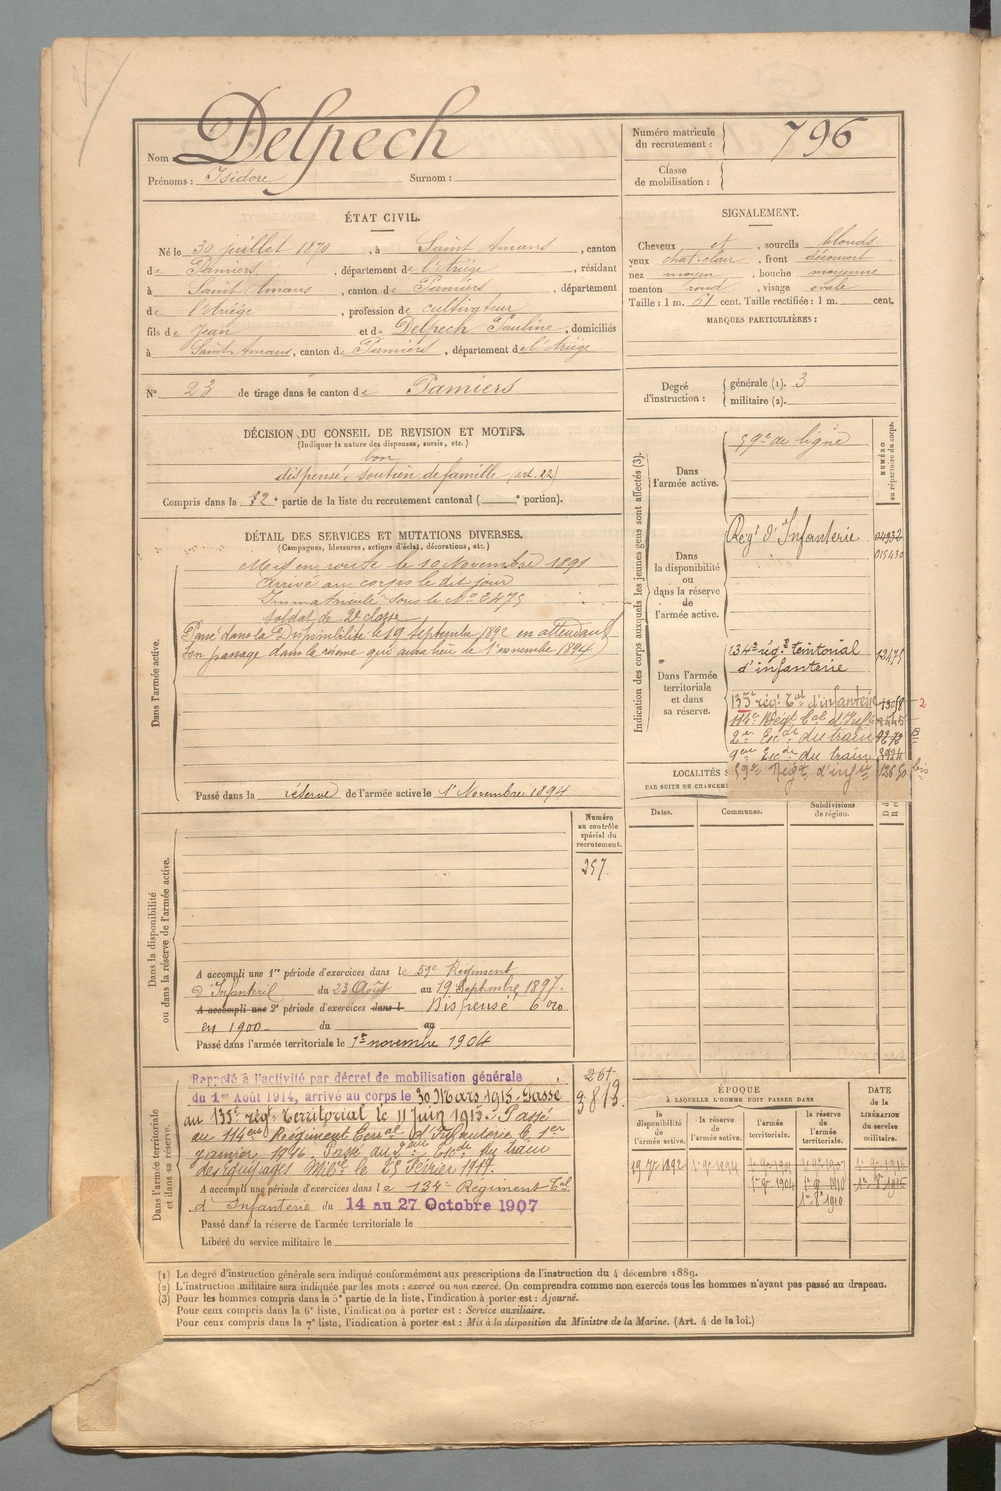 Nom : Delpech
Prénoms : Isidore Surnom :
Numéro matricule du recrutement : 796
Classe de mobilisation :
ÉTAT CIVIL.
Né le 30 juillet 1870, à Saint Amans, canton
de Pamiers, département de l'Ariège, résidant
à Saint Amans, canton de Pamiers, département
de l'Ariège, profession de cultivateur
fils de Jean et de Delpech Pauline, domiciliés
à Saint-Amans, canton de Pamiers, département de l'Ariège
N° 23 de tirage dans le canton de Pamiers
SIGNALEMENT.
Cheveux et, sourcils blonds
yeux chat. clair, front découvert
nez moyen, bouche moyenne
menton rond, visage ovale
Taille : 1 m. 61 cent. Taille rectifiée : 1 m. cent.
MARQUES PARTICULIÈRES :
Degré d'instruction : générale (1). 3
militaire (2).
DÉCISION DU CONSEIL DE REVISION ET MOTIFS.
(Indiquer la nature des dispenses, sursis, etc.)
bon
dispensé, soutien de famille (art. 22)
Compris dans la partie de la liste du recrutement cantonal ( portion).
DÉTAIL DES SERVICES ET MUTATIONS DIVERSES.
(Campagnes, blessures, actions d'éclat, décorations, etc.)
Dans l'armée active.
Mis en route le 10 Novembre 1891
Arrivé au corps le dit jour
Immatriculé sous le N° 2475
soldat de 2e classe
Passé dans la Disponibilité le 19 Septembre 1892 en attendant
son passage dans la réserve qui aura lieu le 1er novembre 1894
Passé dans la réserve de l'armée active le 1er Novembre 1894
Indication des corps auxquels les jeunes gens sont affectés (3).
NUMÉRO au répertoire du corps.
Dans l'armée active.
59e de ligne
Dans la disponibilité ou dans la réserve de l'armée active.
Régt d'Infanterie
015430
Dans l'armée territoriale et dans sa réserve.
134e régt territorial
d'infanterie
135e régt tal d'infanterie
114e Régt tal d'Infie
2e Escon du train
9e Escon du train
59e Régt d'infie bis
LOCALITÉS
PAR SUITE DE CHANGEM
Dates. Communes. Subdivisions de région.
Dans la disponibilité ou dans la réserve de l'armée active.
Numéro au contrôle spécial du recrutement.
257.
A accompli une 1re période d'exercices dans le 59e Régiment
d'Infanterie du 23 Août au 19 Septembre 1897.
A accompli une 2e période d'exercices dans l Dispensé
en 1900 du au
Passé dans l'armée territoriale le 1er novembre 1904
Dans l'armée territoriale et dans sa réserve.
Rappelé à l'activité par décret de mobilisation générale
du 1er Août 1914, arrivé au corps le 30 Mars 1915. Passé
au 135e régt territorial le 11 Juin 1915. Passé
au 114eme Régiment Terral d'Infanterie le 1er
janvier 1916. Passé au 2eme Escon du train
des Equipages Mil. le Février 1917.
A accompli une période d'exercices dans le 134e Régiment Tal
d'Infanterie du 14 au 27 Octobre 1907
Passé dans la réserve de l'armée territoriale le
Libéré du service militaire le
261
ÉPOQUE
À LAQUELLE L'HOMME DOIT PASSER DANS
la disponibilité de l'armée active.
la réserve de l'armée active.
l'armée territoriale.
la réserve de l'armée territoriale.
DATE de la LIBÉRATION du service militaire.
19 7r 1892
(1) Le degré d'instruction générale sera indiqué conformément aux prescriptions de l'instruction du 4 décembre 1889.
(2) L'instruction militaire sera indiquée par les mots : exercé ou non exercé. On comprendra comme non exercés tous les hommes n'ayant pas passé au drapeau.
(3) Pour les hommes compris dans la 5e partie de la liste, l'indication à porter est : Ajourné.
Pour ceux compris dans la 6e liste, l'indication à porter est : Service auxiliaire.
Pour ceux compris dans la 7e liste, l'indication à porter est : Mis à la disposition du Ministre de la Marine. (Art. 4 de la loi.)